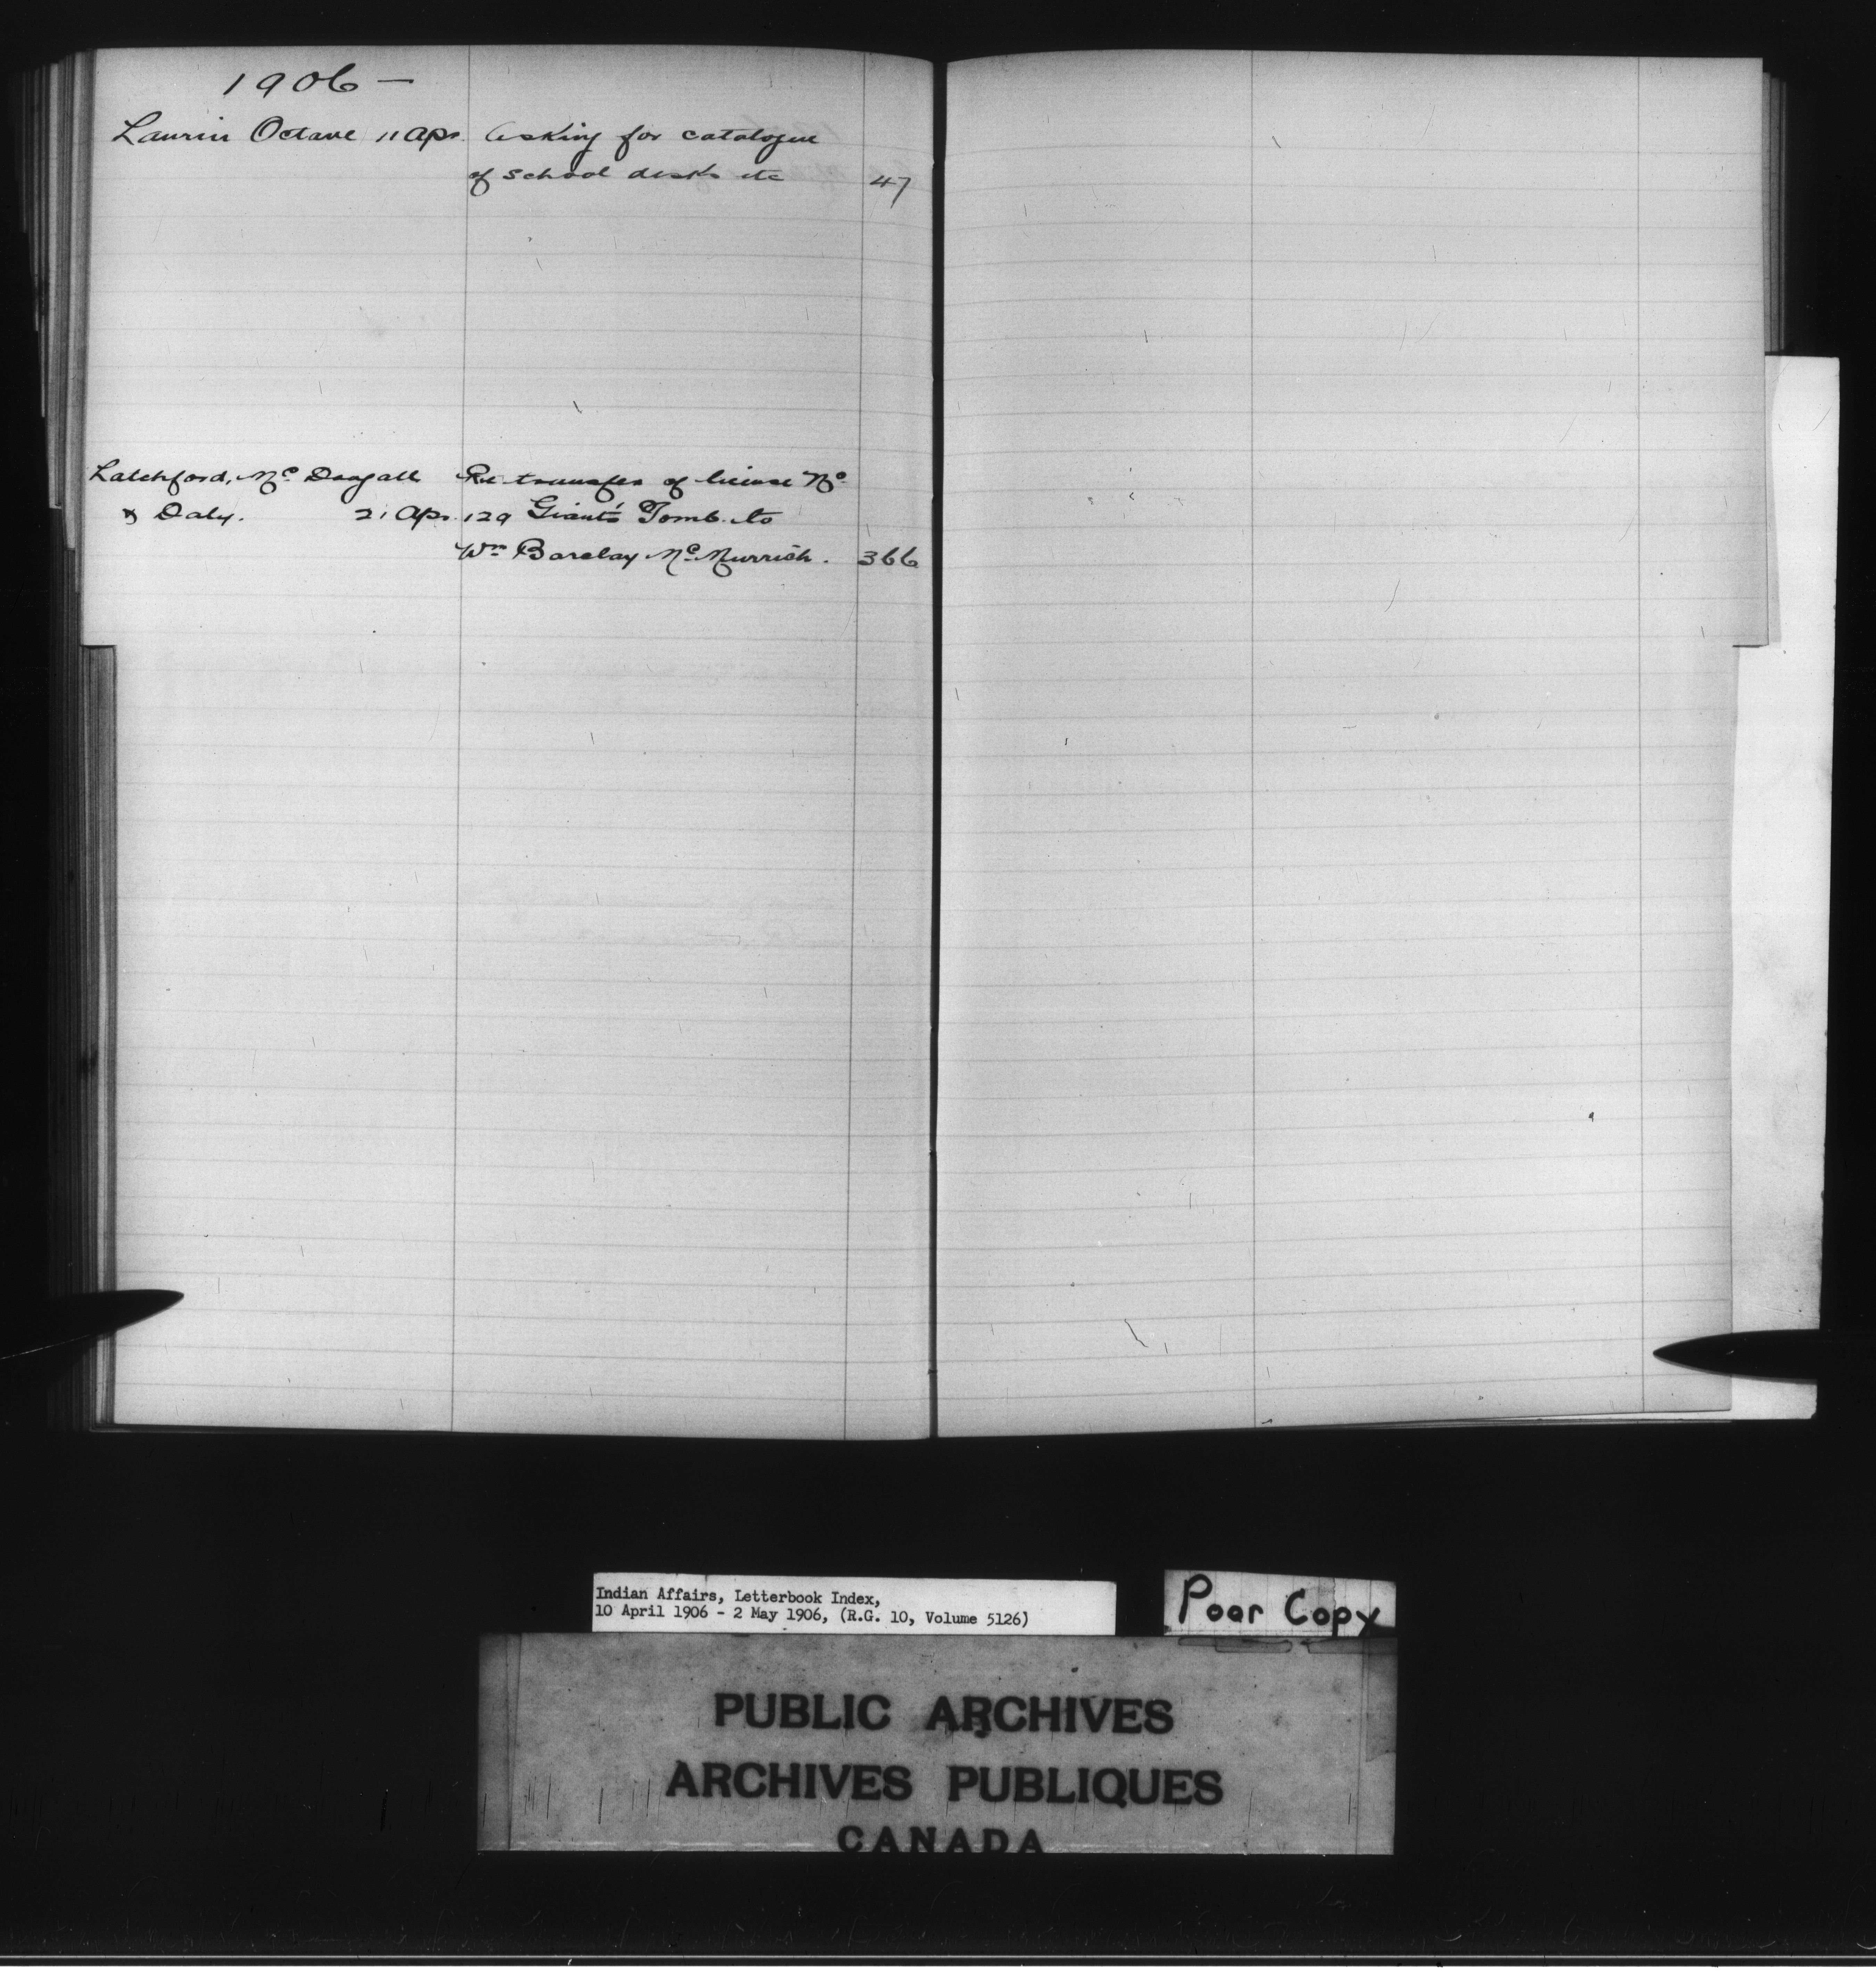 1906 —
Laurin Octave 11 Apr. Asking for catalogue
of school desks etc 47
Latchford, Mc Dougall Re transfer of license No
& Daly. 21 Apr. 129 Giant's Tomb to
Wm Barclay McMurrich. 366
Indian Affairs, Letterbook Index,
10 April 1906 - 2 May 1906, (R.G. 10, Volume 5126)
Poor Copy
PUBLIC ARCHIVES
ARCHIVES PUBLIQUES
CANADA